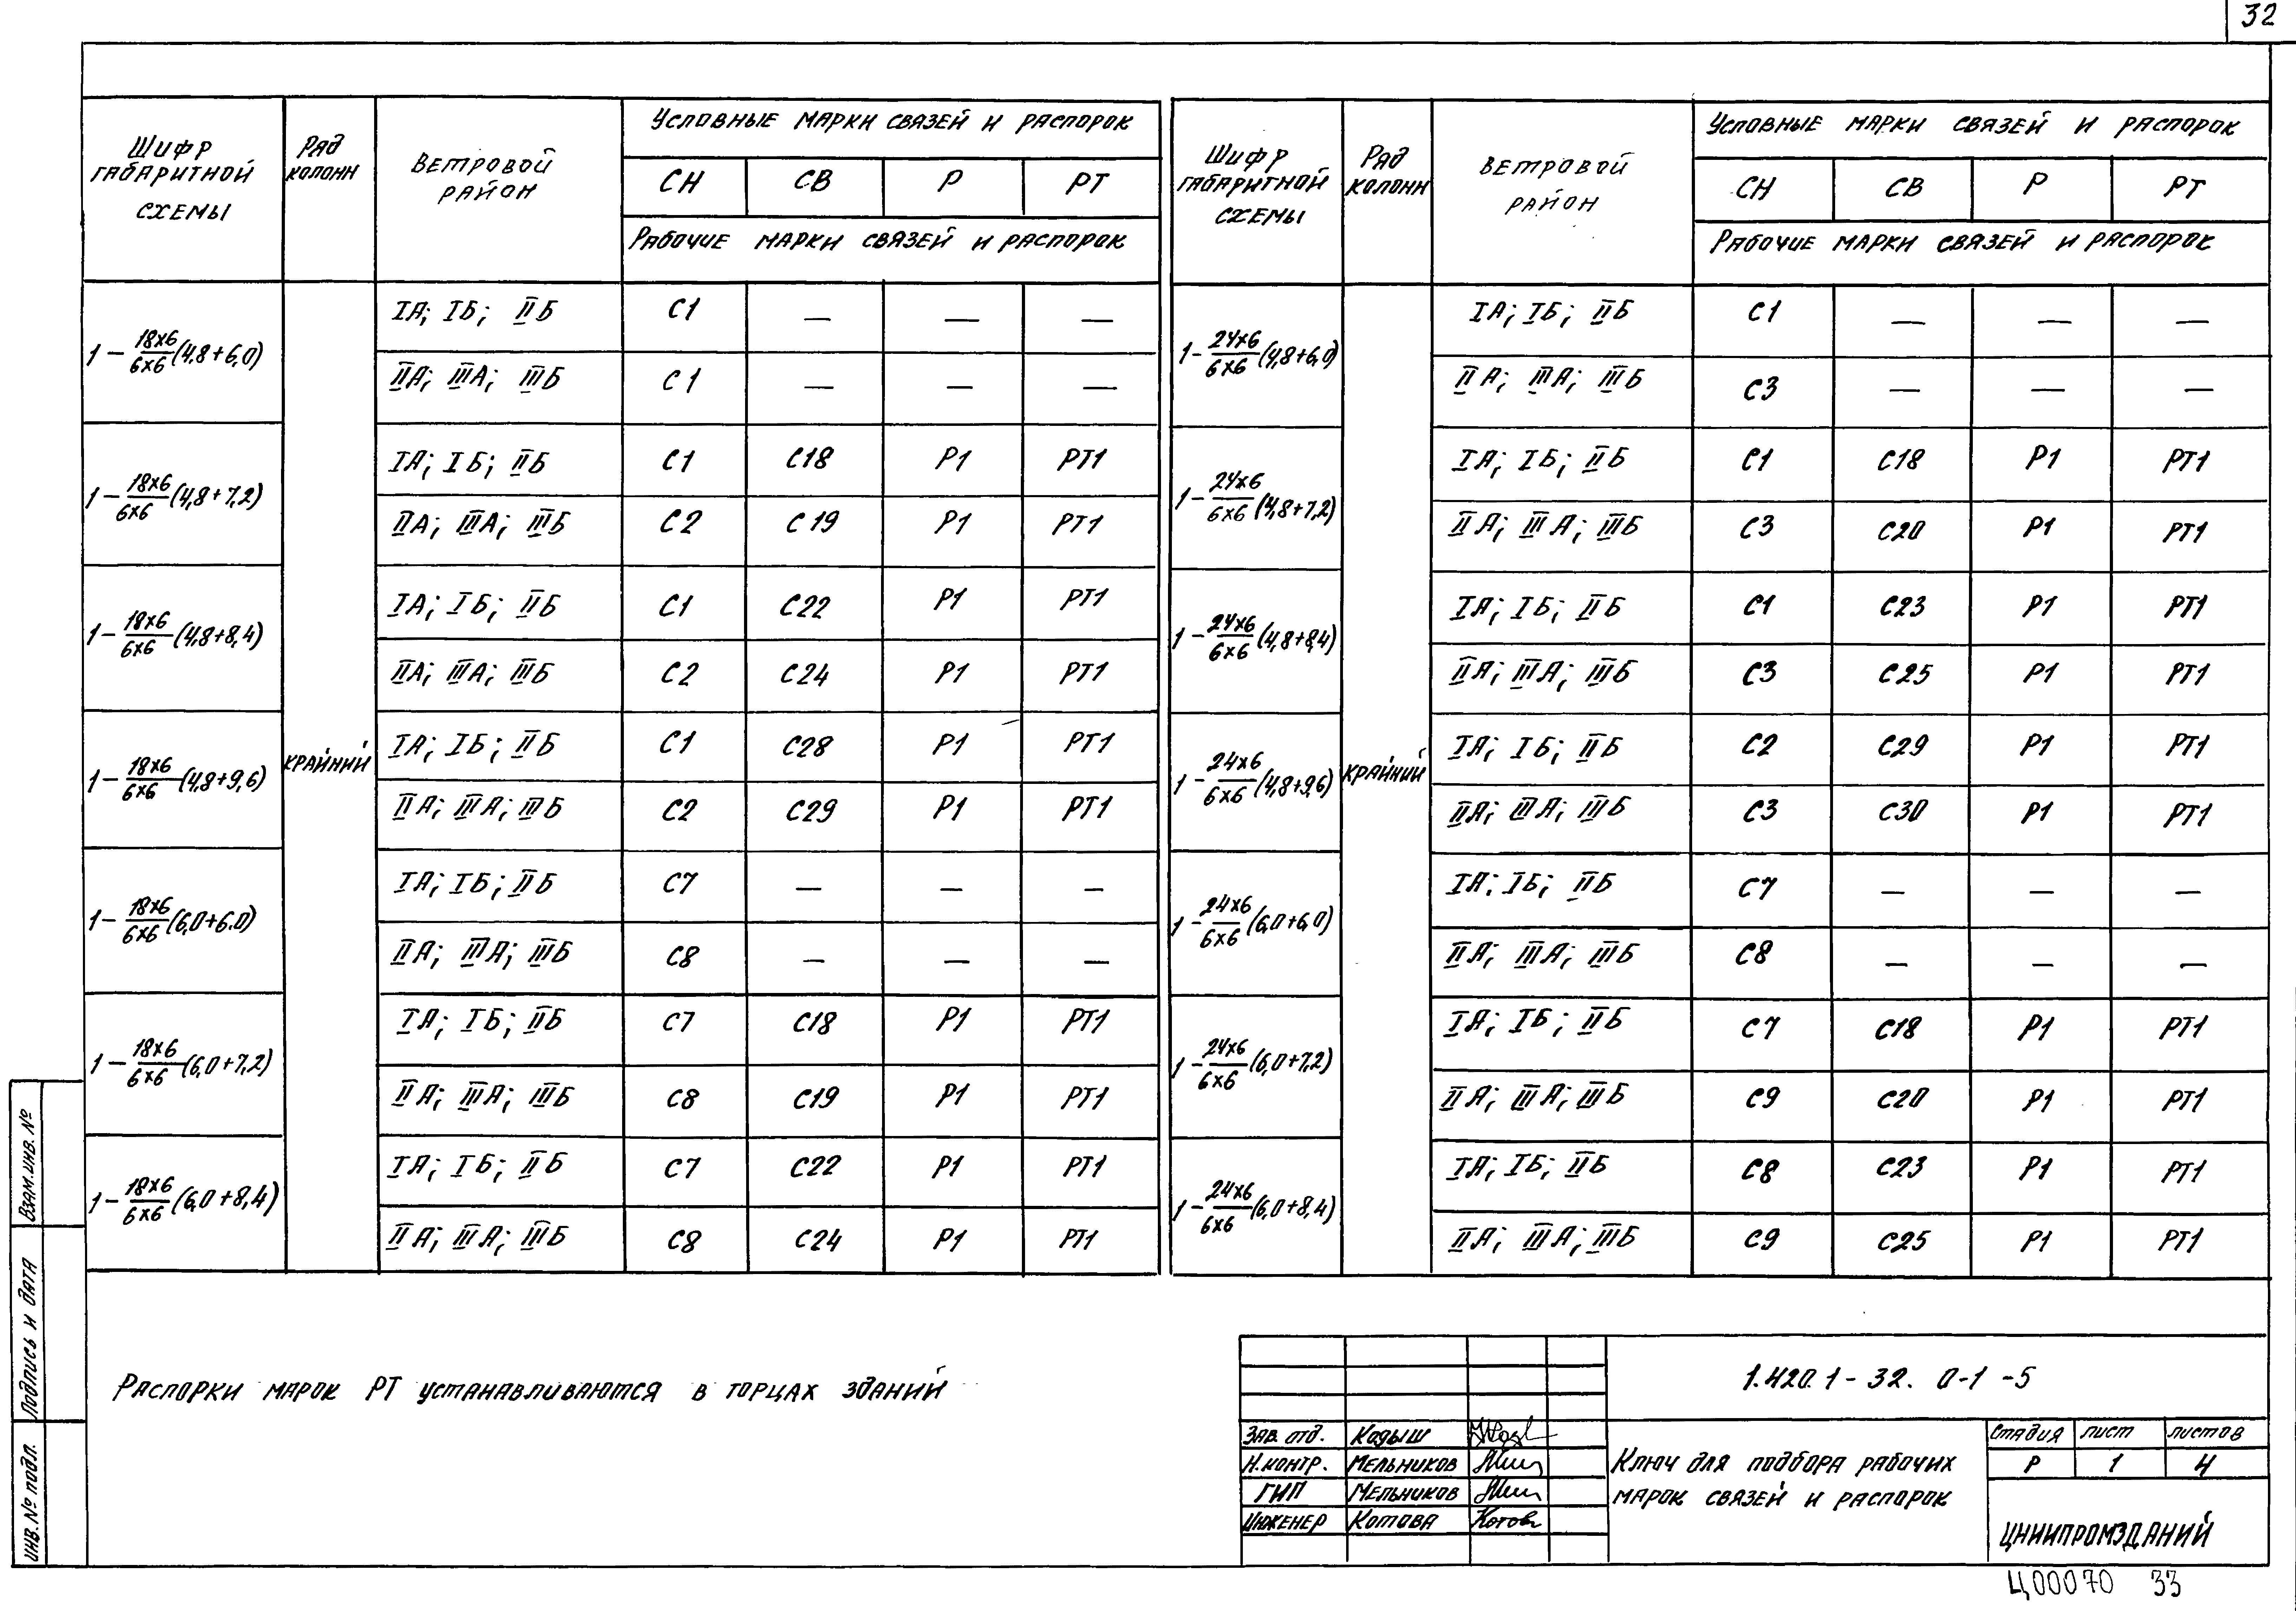 32
Шифр габаритной схемы | Ряд колонн | Ветровой район | Условные марки связей и распорок
СН | СВ | Р | РТ
Рабочие марки связей и распорок
1-18х6/6х6(4,8+6,0) | крайний | IА; IБ; IIБ | С1 | — | — | —
IIА; IIIА; IIIБ | С1 | — | — | —
1-18х6/6х6(4,8+7,2) | IА; IБ; IIБ | С1 | С18 | Р1 | РТ1
IIА; IIIА; IIIБ | С2 | С19 | Р1 | РТ1
1-18х6/6х6(4,8+8,4) | IА; IБ; IIБ | С1 | С22 | Р1 | РТ1
IIА; IIIА; IIIБ | С2 | С24 | Р1 | РТ1
1-18х6/6х6(4,8+9,6) | IА; IБ; IIБ | С1 | С28 | Р1 | РТ1
IIА; IIIА; IIIБ | С2 | С29 | Р1 | РТ1
1-18х6/6х6(6,0+6.0) | IА; IБ; IIБ | С7 | — | — | —
IIА; IIIА; IIIБ | С8 | — | — | —
1-18х6/6х6(6,0+7,2) | IА; IБ; IIБ | С7 | С18 | Р1 | РТ1
IIА; IIIА; IIIБ | С8 | С19 | Р1 | РТ1
1-18х6/6х6(6,0+8,4) | IА; IБ; IIБ | С7 | С22 | Р1 | РТ1
IIА; IIIА; IIIБ | С8 | С24 | Р1 | РТ1
Шифр габаритной схемы | Ряд колонн | Ветровой район | Условные марки связей и распорок
СН | СВ | Р | РТ
Рабочие марки связей и распорок
1-24х6/6х6(4,8+6,0) | крайний | IА; IБ; IIБ | С1 | — | — | —
IIА; IIIА; IIIБ | С3 | — | — | —
1-24х6/6х6(4,8+7,2) | IА; IБ; IIБ | С1 | С18 | Р1 | РТ1
IIА; IIIА; IIIБ | С3 | С20 | Р1 | РТ1
1-24х6/6х6(4,8+8,4) | IА; IБ; IIБ | С1 | С23 | Р1 | РТ1
IIА; IIIА; IIIБ | С3 | С25 | Р1 | РТ1
1-24х6/6х6(4,8+9,6) | IА; IБ; IIБ | С2 | С29 | Р1 | РТ1
IIА; IIIА; IIIБ | С3 | С30 | Р1 | РТ1
1-24х6/6х6(6,0+6,0) | IА; IБ; IIБ | С7 | — | — | —
IIА; IIIА; IIIБ | С8 | — | — | —
1-24х6/6х6(6,0+7,2) | IА; IБ; IIБ | С7 | С18 | Р1 | РТ1
IIА; IIIА; IIIБ | С9 | С20 | Р1 | РТ1
1-24х6/6х6(6,0+8,4) | IА; IБ; IIБ | С8 | С23 | Р1 | РТ1
IIА; IIIА; IIIБ | С9 | С25 | Р1 | РТ1
Распорки марок РТ устанавливаются в торцах зданий
Взам.инв.№
Подпись и дата
Инв.№ подл.
1.420.1-32. 0-1 -5
Зав. отд. Кодыш
Н.контр. Мельников
ГИП Мельников
Инженер Котова
Ключ для подбора рабочих
марок связей и распорок
Стадия | лист | листов
Р | 1 | 4
ЦНИИПРОМЗДАНИЙ
Ц00070 33